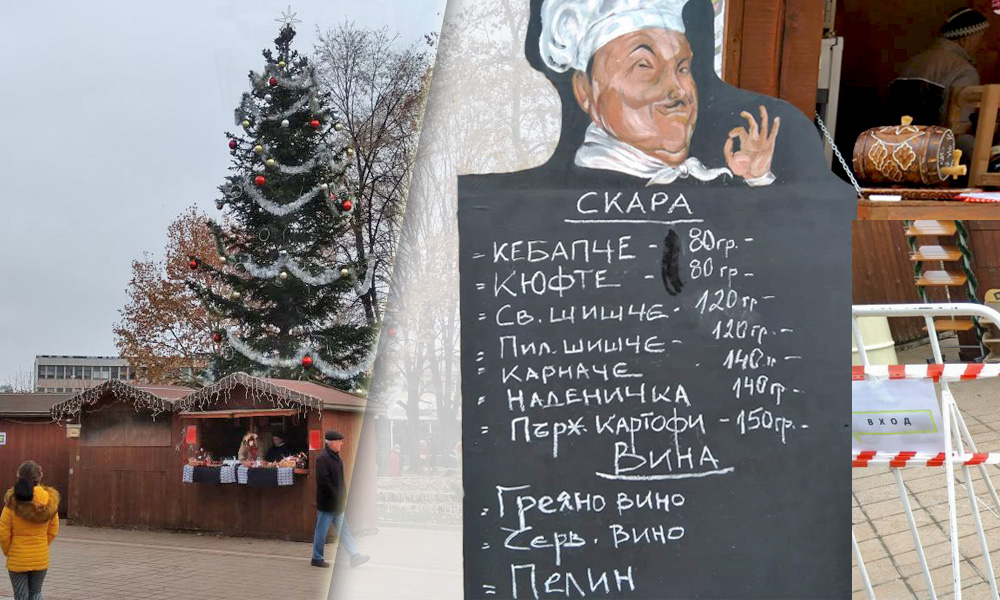 СКАРА
= КЕБАПЧЕ - 80гр. -
= КЮФТЕ - 80гр -
= СВ. ШИШЧЕ - 120гр -
= ПИЛ. ШИШЧЕ - 120гр. -
= КАРНАЧЕ 140гр -
= НАДЕНИЧКА 140гр -
= ПЪРЖ. КАРТОФИ - 150гр. -
ВИНА
= Греяно вино
= Черв. вино
= Пелин
ВХОД